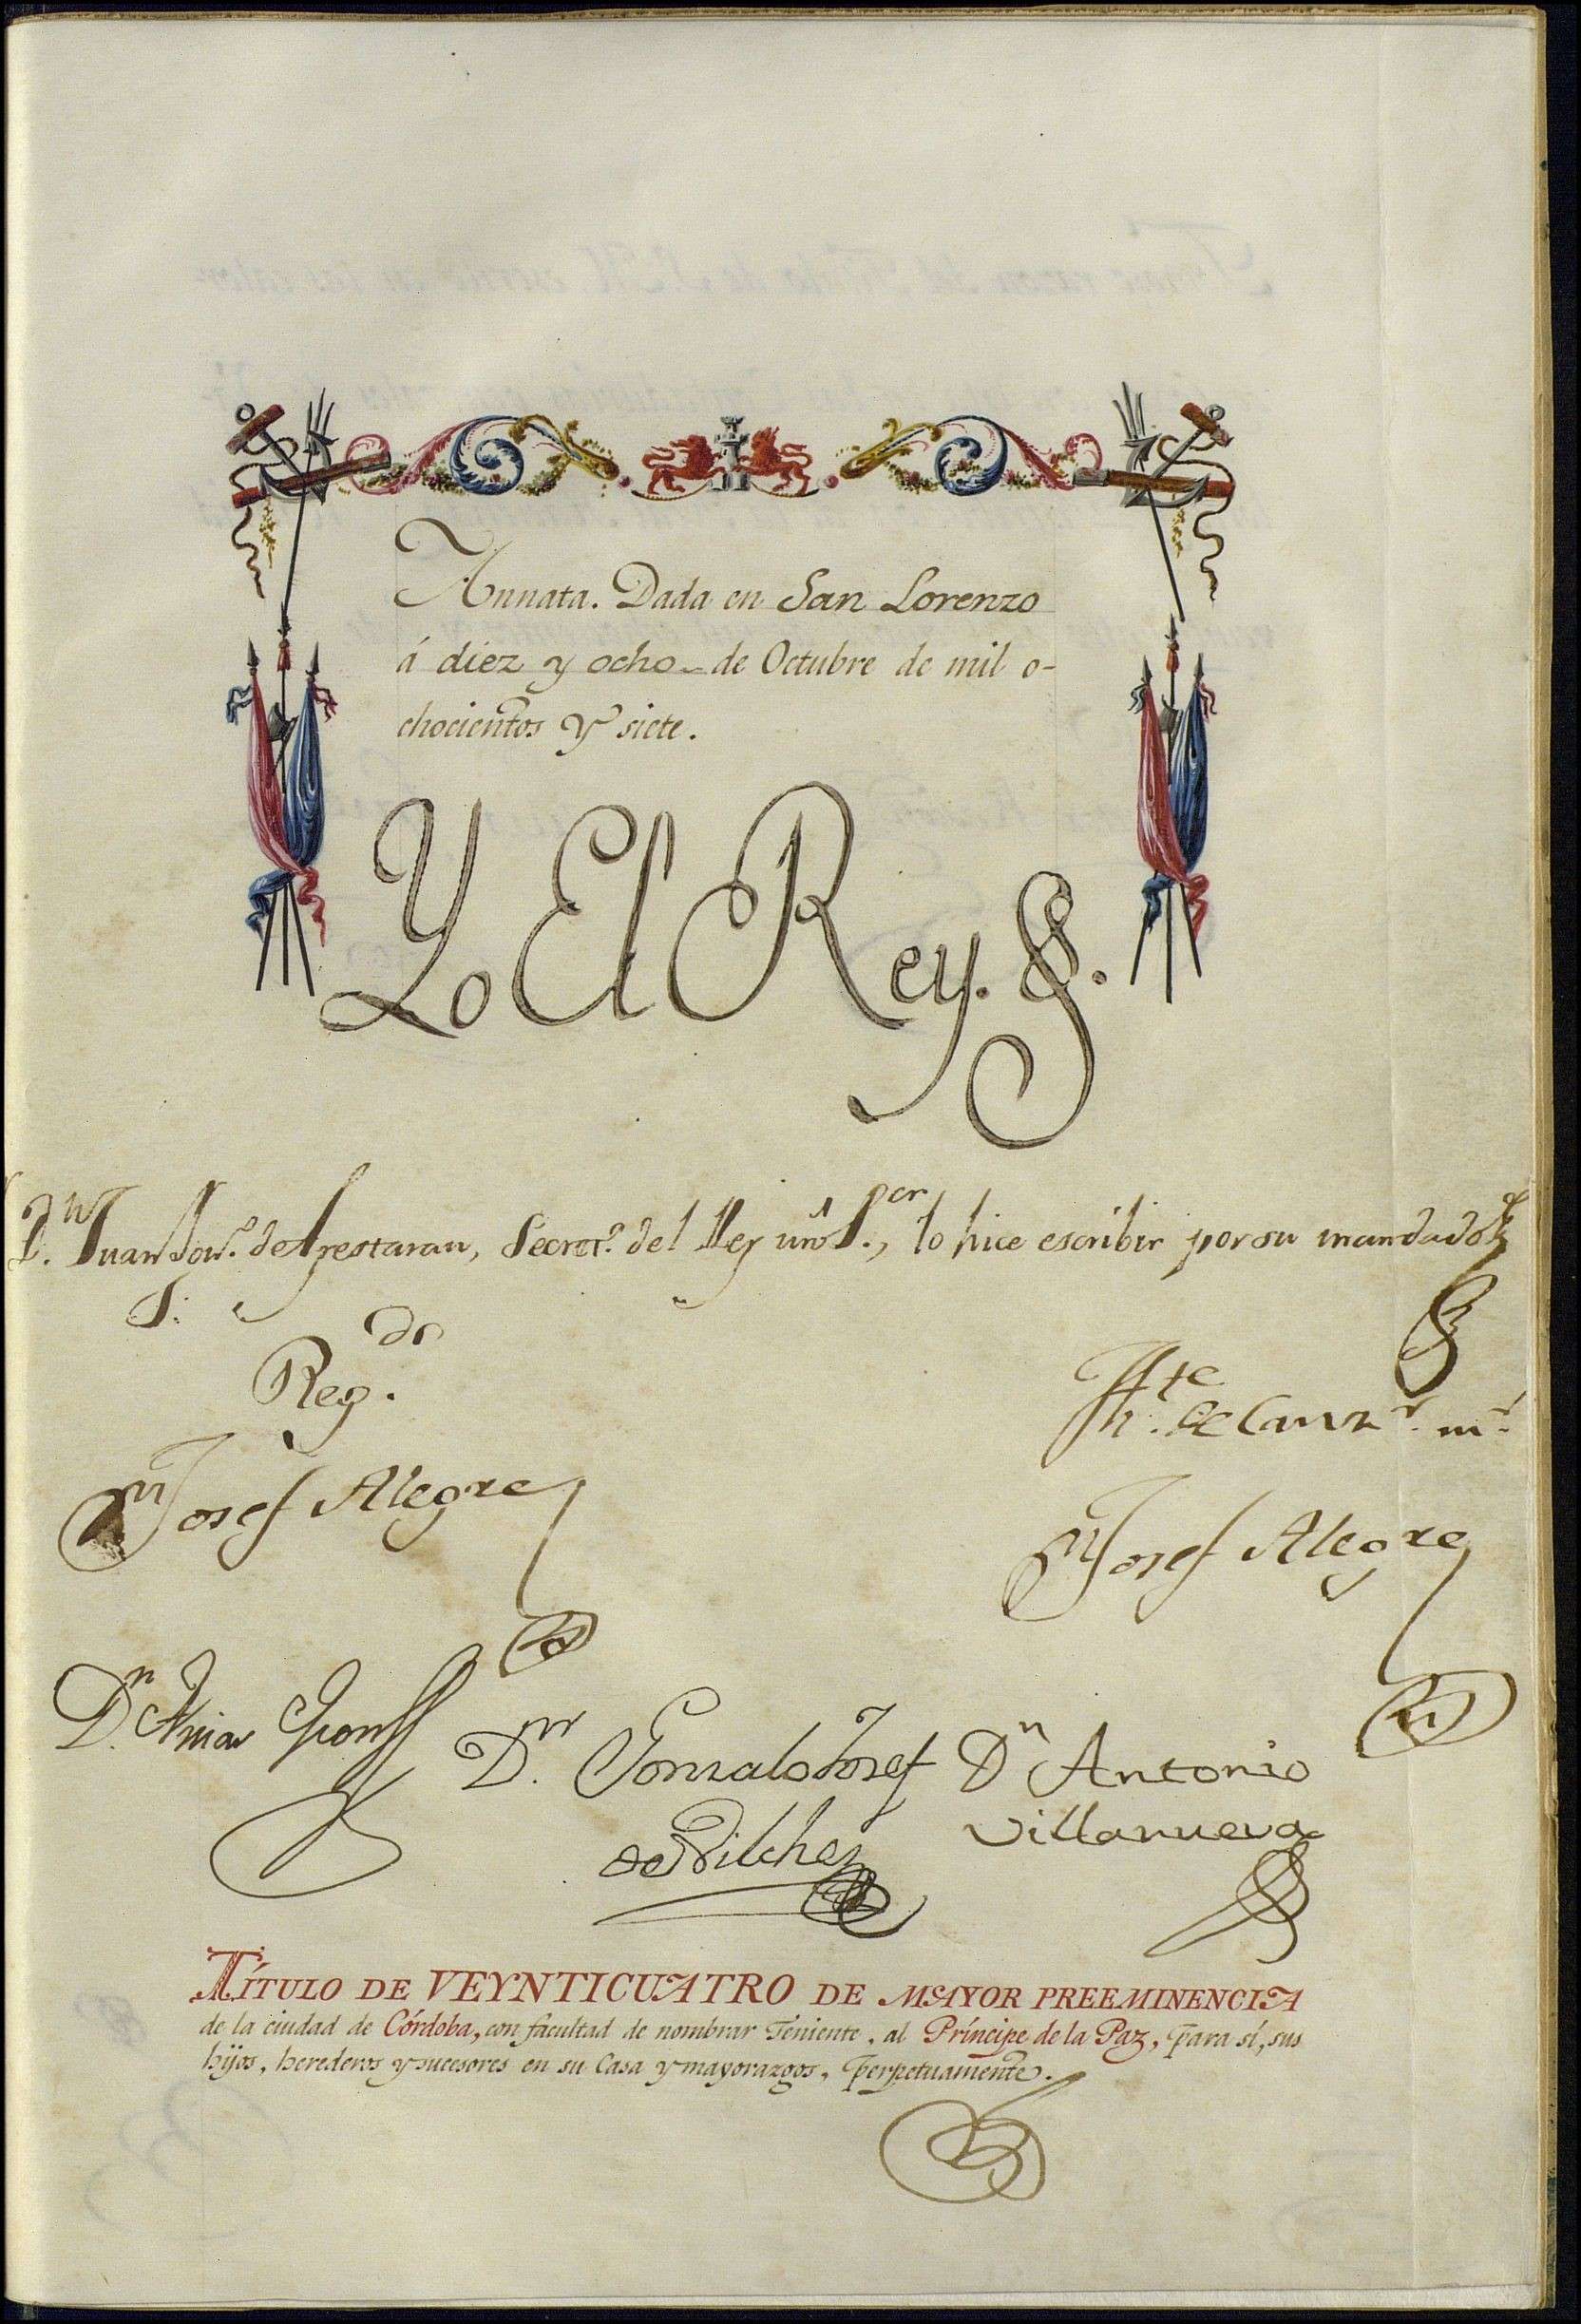 Annata. Dada en San Lorenzo
á diez y ocho de Octubre de mil o-
chocientos y siete.
Yo El Rey.
Dn. Juan Ign.º de Ayestaran, Secret.º del Rey nrô S.or, lo hice escribir por su mandado
Reg.do
Th.te de Canz.r m.r
Dn Josef Alegre
Dn Josef Alegre
Dn.
Dn. Gonzalo Josef
de Vilches
Dn Antonio
Villanueva
TÍTULO DE VEYNTICUATRO DE MAYOR PREEMINENCIA
de la ciudad de Córdoba, con facultad de nombrar Teniente, al Príncipe de la Paz, para sí, sus
hijos, herederos y sucesores en su Casa y mayorazgos, perpetuamente.